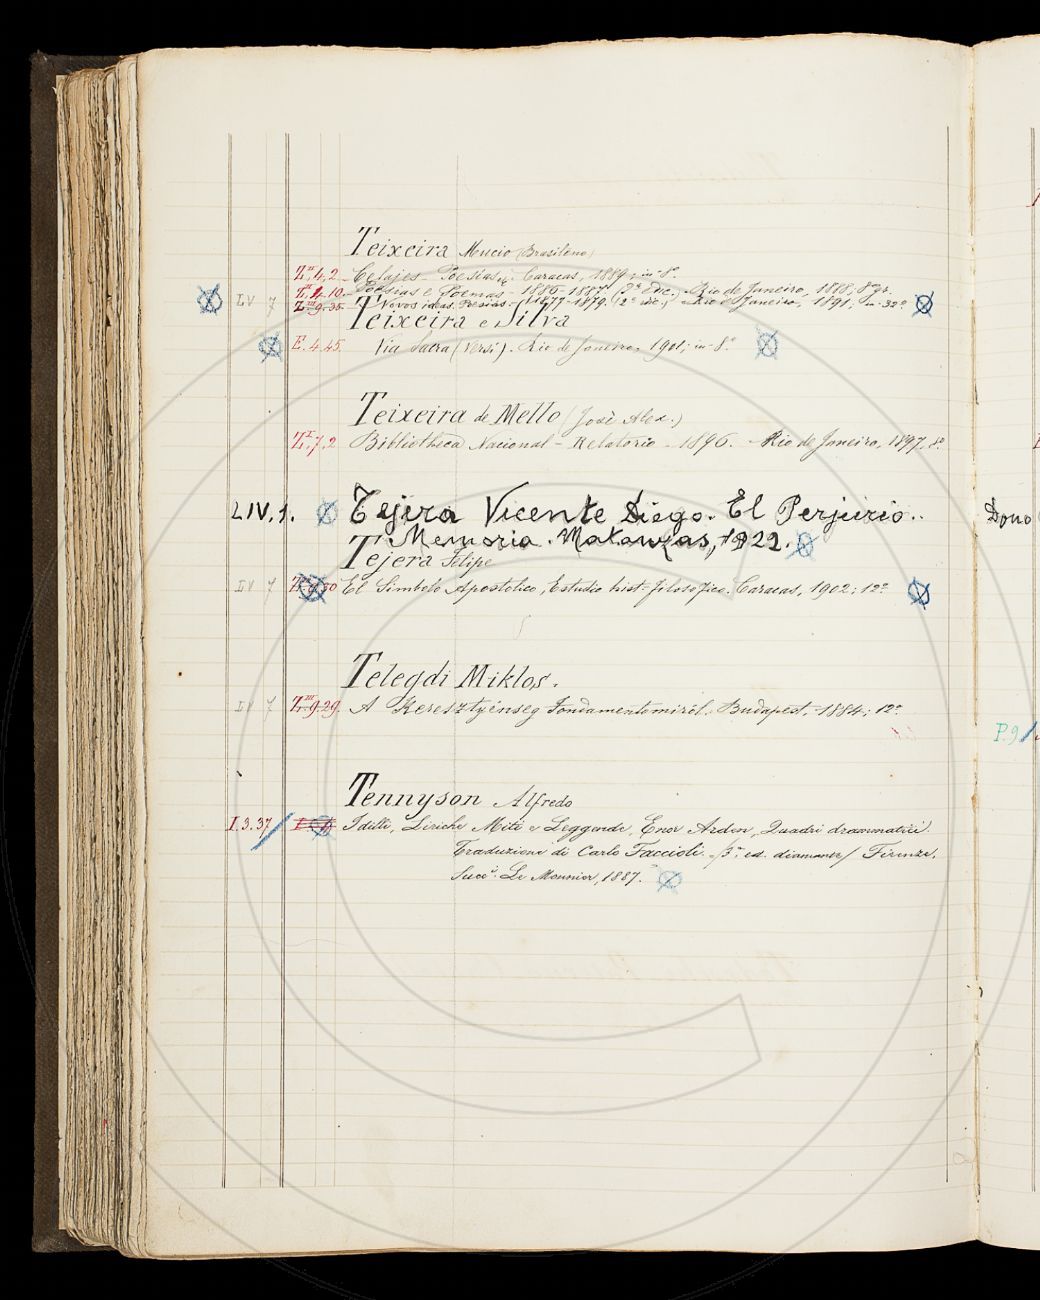 Teixeira Mucio (Brasileno)
Z.II.4.2. Celajes - Poesias; Caracas, 1889; in-8º
Poesias e Poemas - 1886-1887 (2ª Edic.; Rio de Janeiro, 1888, 8º gr.
LV 7 Z.III.9.35. Novos ideas. Poesias - (1877-1879, (2ª edic.; Rio de Janeiro, 1891, in-32º
Teixeira e Silva
E.4.45. Via Sacra (Versi). Rio de Janeiro, 1901; in-8º
Teixeira de Mello (José Alex.)
Z.I.7.2 Bibliotheca Nacional - Relatorio - 1896. - Rio de Janeiro, 1897, 8º
LIV.1. Tejera Vicente Diego. El Perjurio.. Dono
Memoria. Matanzas, 1922.
Tejera Felipe
LV 7 El Simbolo Apostolico, Estudio hist-filosofico. Caracas, 1902; 12º
Telegdi Miklos.
LV 7 Z.III.9.29. A Keresztyénseg Fondamentomiról. Budapest, 1884; 12º
P.9/
Tennyson Alfredo
I.3.37 Idilli, Liriche Miti e Leggende, Enoc Arden, Quadri drammatici.
Traduzioni di Carlo Faccioli. /3ª ed. diamante/ Firenze,
Succ.i Le Monnier, 1887.